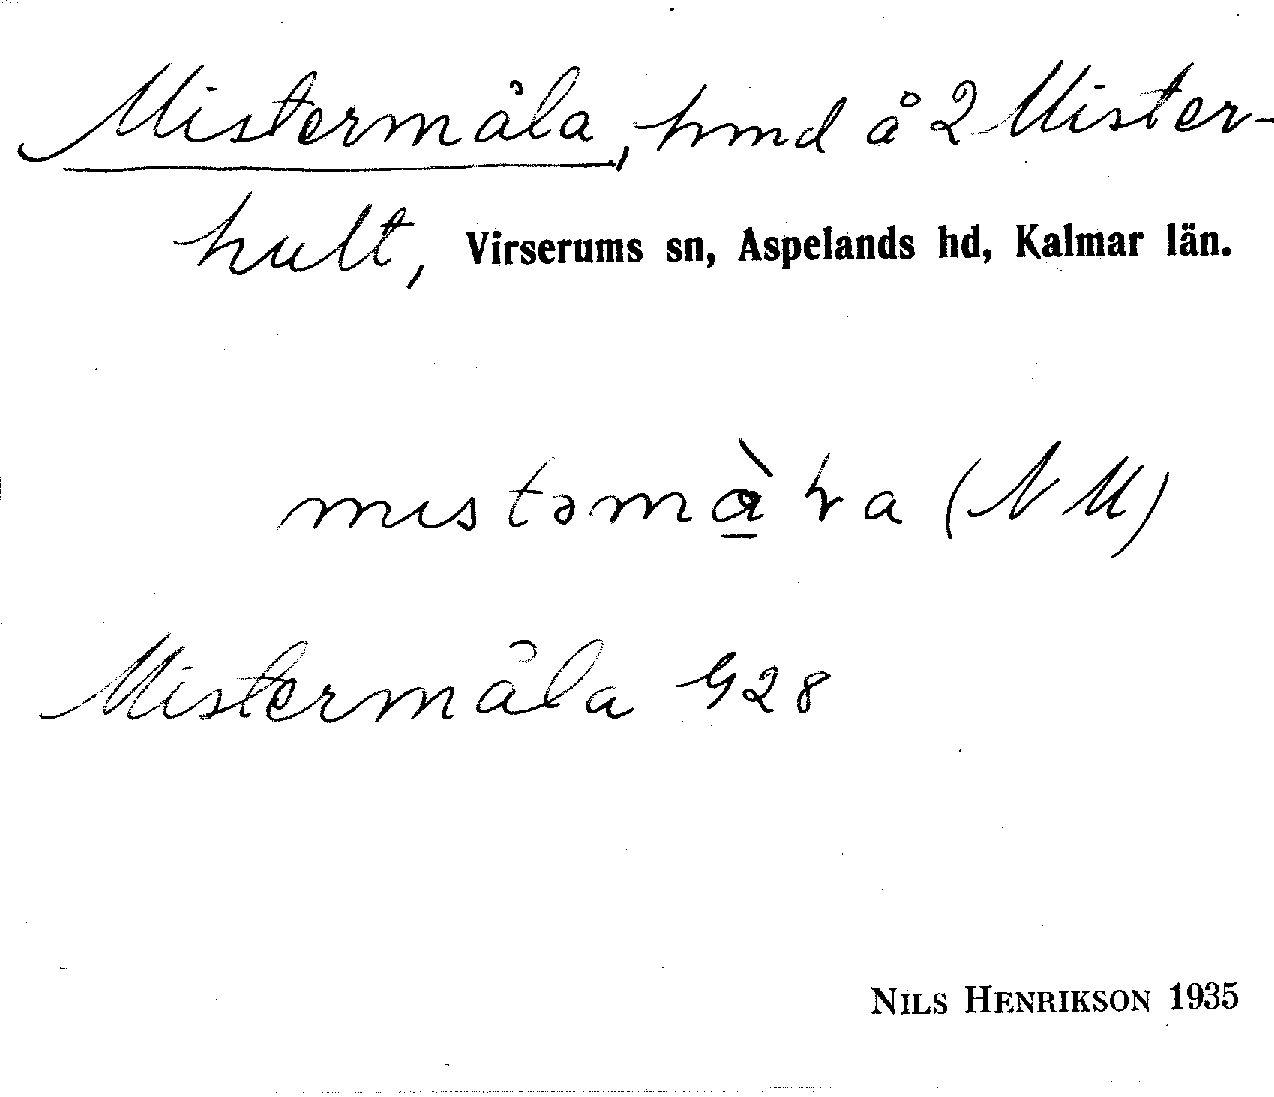 Mistermåla, hmd å 2 Mister-
hult, Virserums sn, Aspelands hd, Kalmar län.
(NM)
Mistermåla G28
NILS HENRIKSON 1935